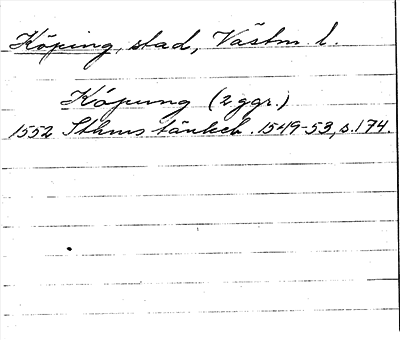 Köping, stad, Västm. l.
Köpung (2 ggr.)
1552 Sthms tänkeb. 1549-53, s. 174.